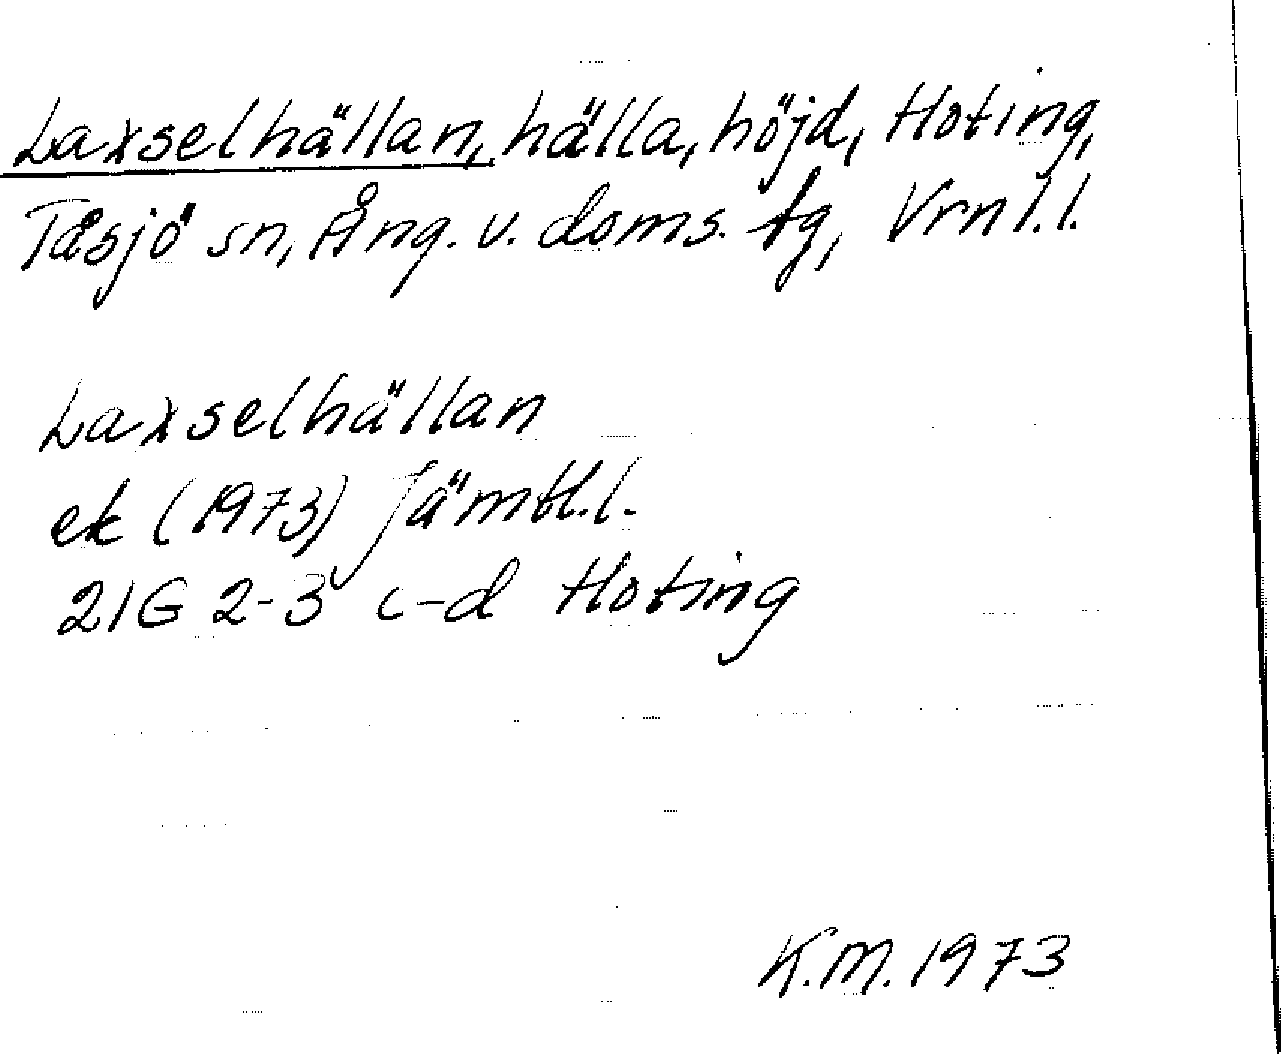 Laxselhällan, hälla, höjd, Hoting,
Tåsjö sn, Ång. v. doms. tg, Vrnl.l.
Laxselhällan
ek (1973) Jämtl.l.
21G 2-3 c-d Hoting
K.M. 1973